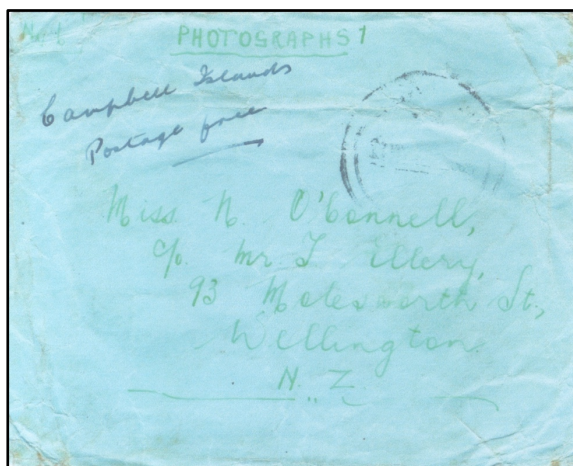 PHOTOGRAPHS 1
Campbell Islands
Postage free
Miss N. O'Connell,
c/o. Mr. J Ellery,
93 Molesworth St.,
Wellington.
N. Z.